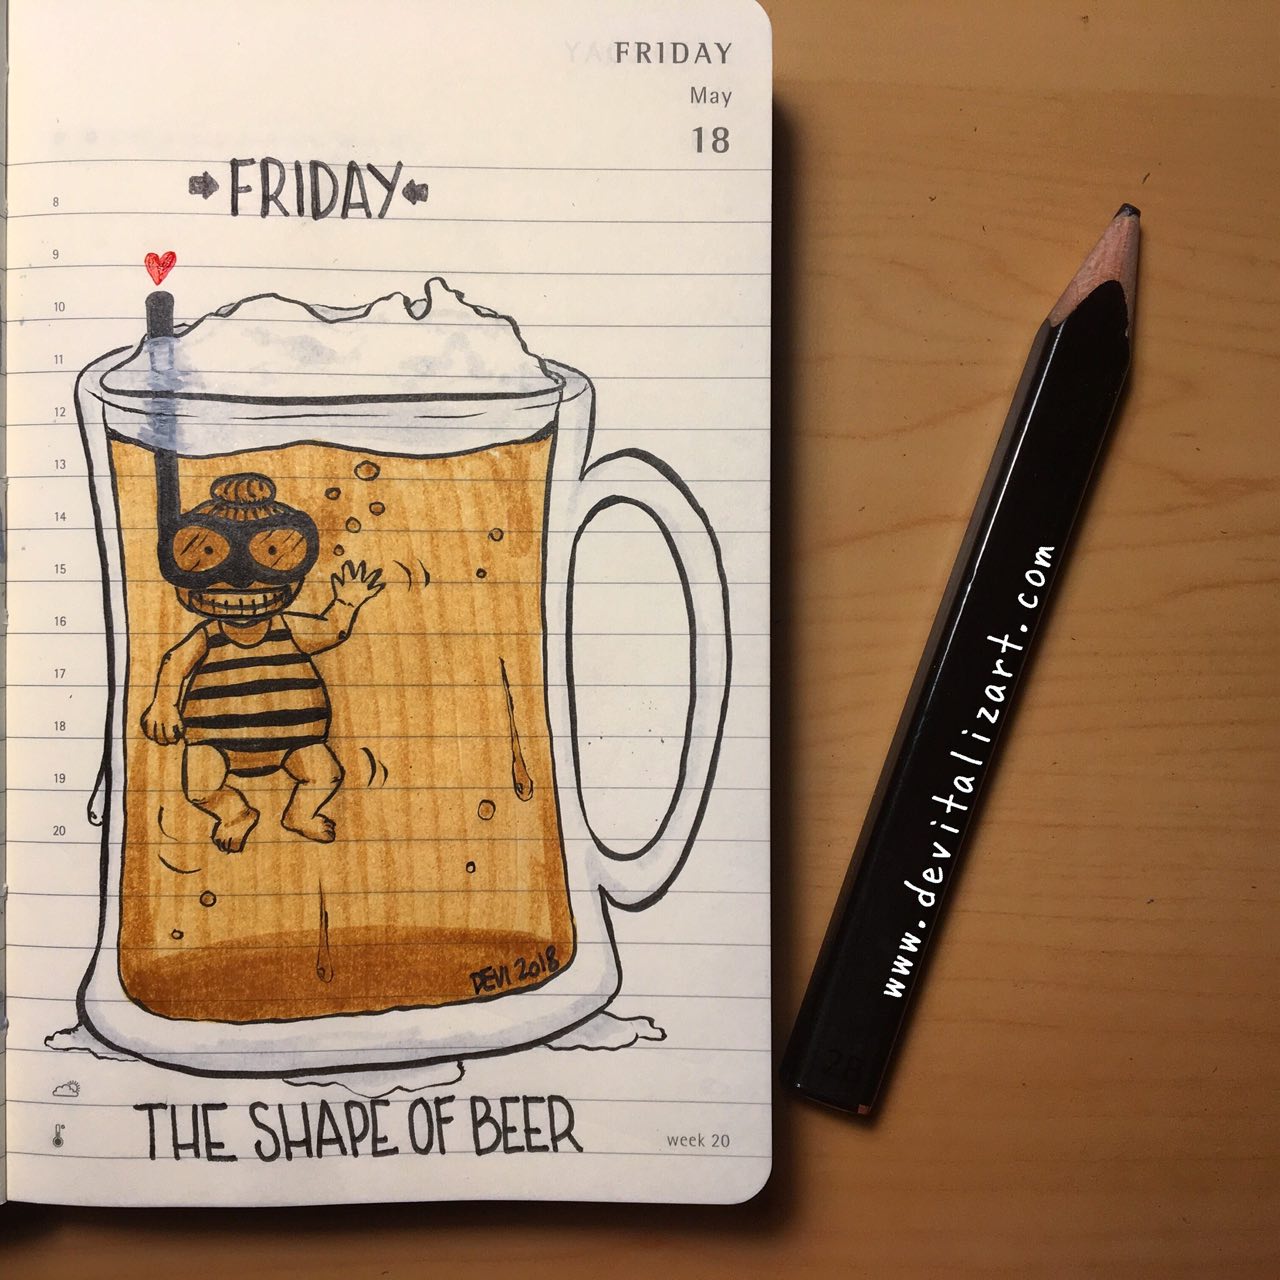 FRIDAY
May
18
FRIDAY
8
9
10
11
12
13
14
15
16
17
18
19
20
DEVI 2018
THE SHAPE OF BEER
week 20
www.devitalizart.com
2B